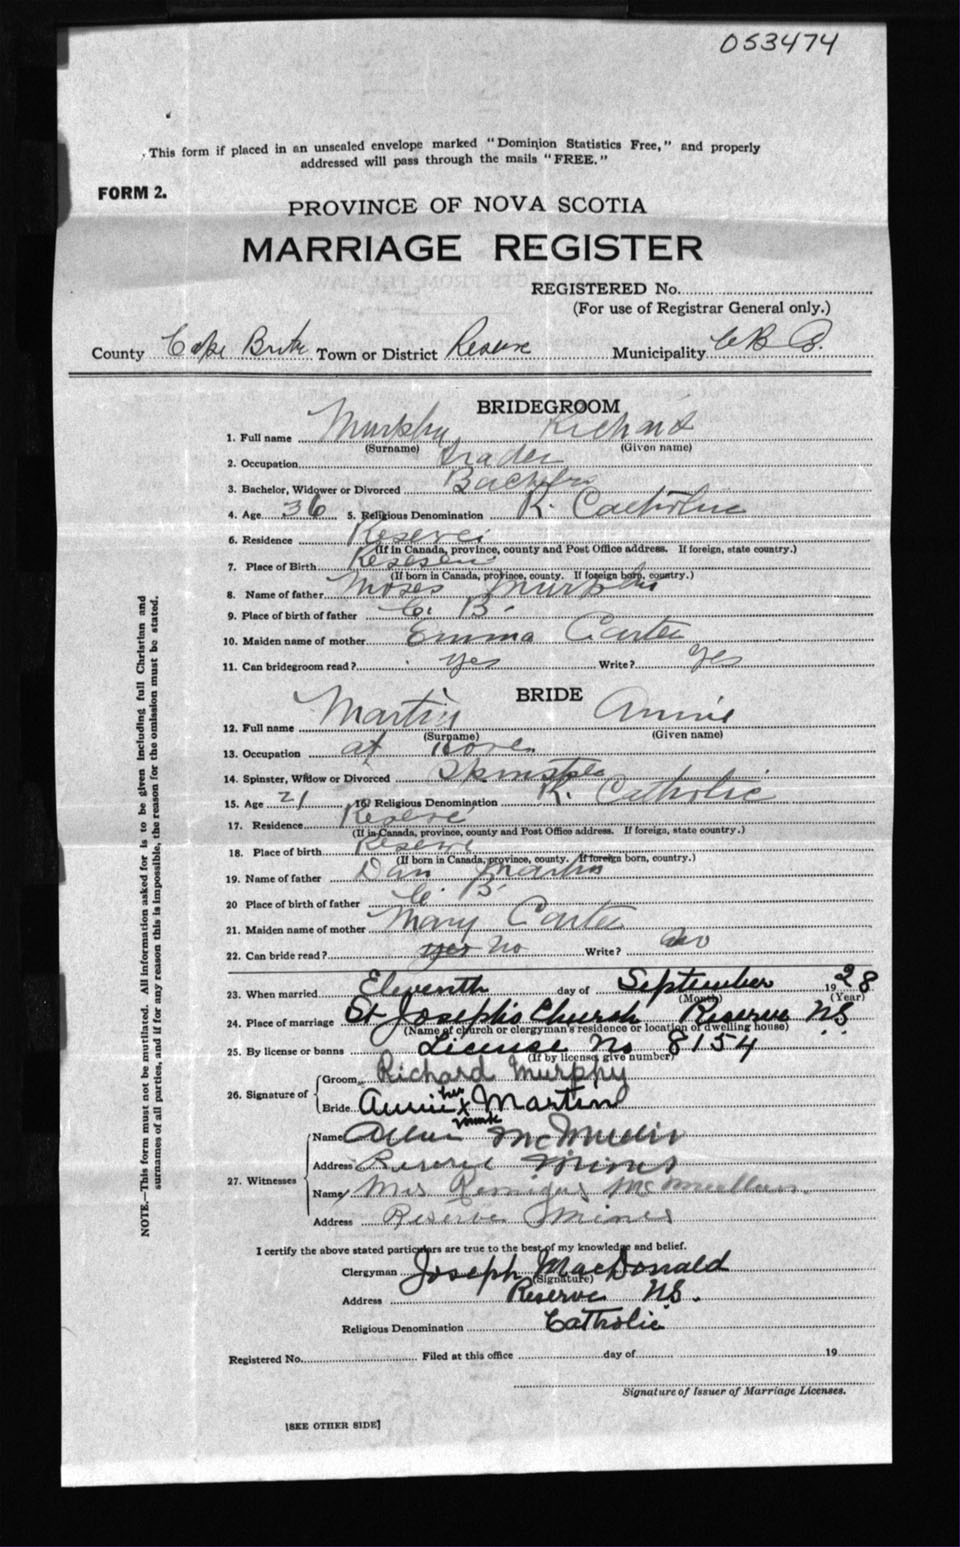 053474
This form if placed in an unsealed envelope marked "Dominion Statistics Free," and properly
addressed will pass through the mails "FREE."
FORM 2.
PROVINCE OF NOVA SCOTIA
MARRIAGE REGISTER
REGISTERED No.
(For use of Registrar General only.)
County Cape Breton Town or District Reserve Municipality C B
BRIDEGROOM
1. Full name Murphy Richard
(Surname) (Given name)
2. Occupation Trader
3. Bachelor, Widower or Divorced Bachelor
4. Age 36 5. Religious Denomination R. Catholic
6. Residence Reserve
(If in Canada, province, county and Post Office address. If foreign, state country.)
7. Place of Birth Reserve
(If born in Canada, province, county. If foreign born, country.)
8. Name of father Moses Murphy
9. Place of birth of father C. B.
10. Maiden name of mother Emma Carter
11. Can bridegroom read? yes Write? yes
BRIDE
12. Full name Martin Annie
(Surname) (Given name)
13. Occupation at Home
14. Spinster, Widow or Divorced Spinster
15. Age 21 16 Religious Denomination R. Catholic
17. Residence Reserve
(If in Canada, province, county and Post Office address. If foreign, state country.)
18. Place of birth Reserve
(If born in Canada, province, county. If foreign born, country.)
19. Name of father Dan Martin
20 Place of birth of father C. B.
21. Maiden name of mother Mary Carter
22. Can bride read? yes No Write? no
23. When married Eleventh day of September 1928
(Month) (Year)
24. Place of marriage St Joseph's Church Reserve NS
(Name of church or clergyman's residence or location of dwelling house)
25. By license or banns License No 8154
(If by license, give number)
26. Signature of Groom Richard Murphy
Bride Annie her x mark Martin
27. Witnesses
Name
Address Reserve Mines
Name Mrs McMullan
Address Reserve Mines
I certify the above stated particulars are true to the best of my knowledge and belief.
Clergyman Joseph MacDonald
(Signature)
Address Reserve NS.
Religious Denomination Catholic
Registered No. Filed at this office day of 19
Signature of Issuer of Marriage Licenses.
[SEE OTHER SIDE]
NOTE.—This form must not be mutilated. All information asked for is to be given including full Christian and
surnames of all parties, and if for any reason this is impossible, the reason for the omission must be stated.